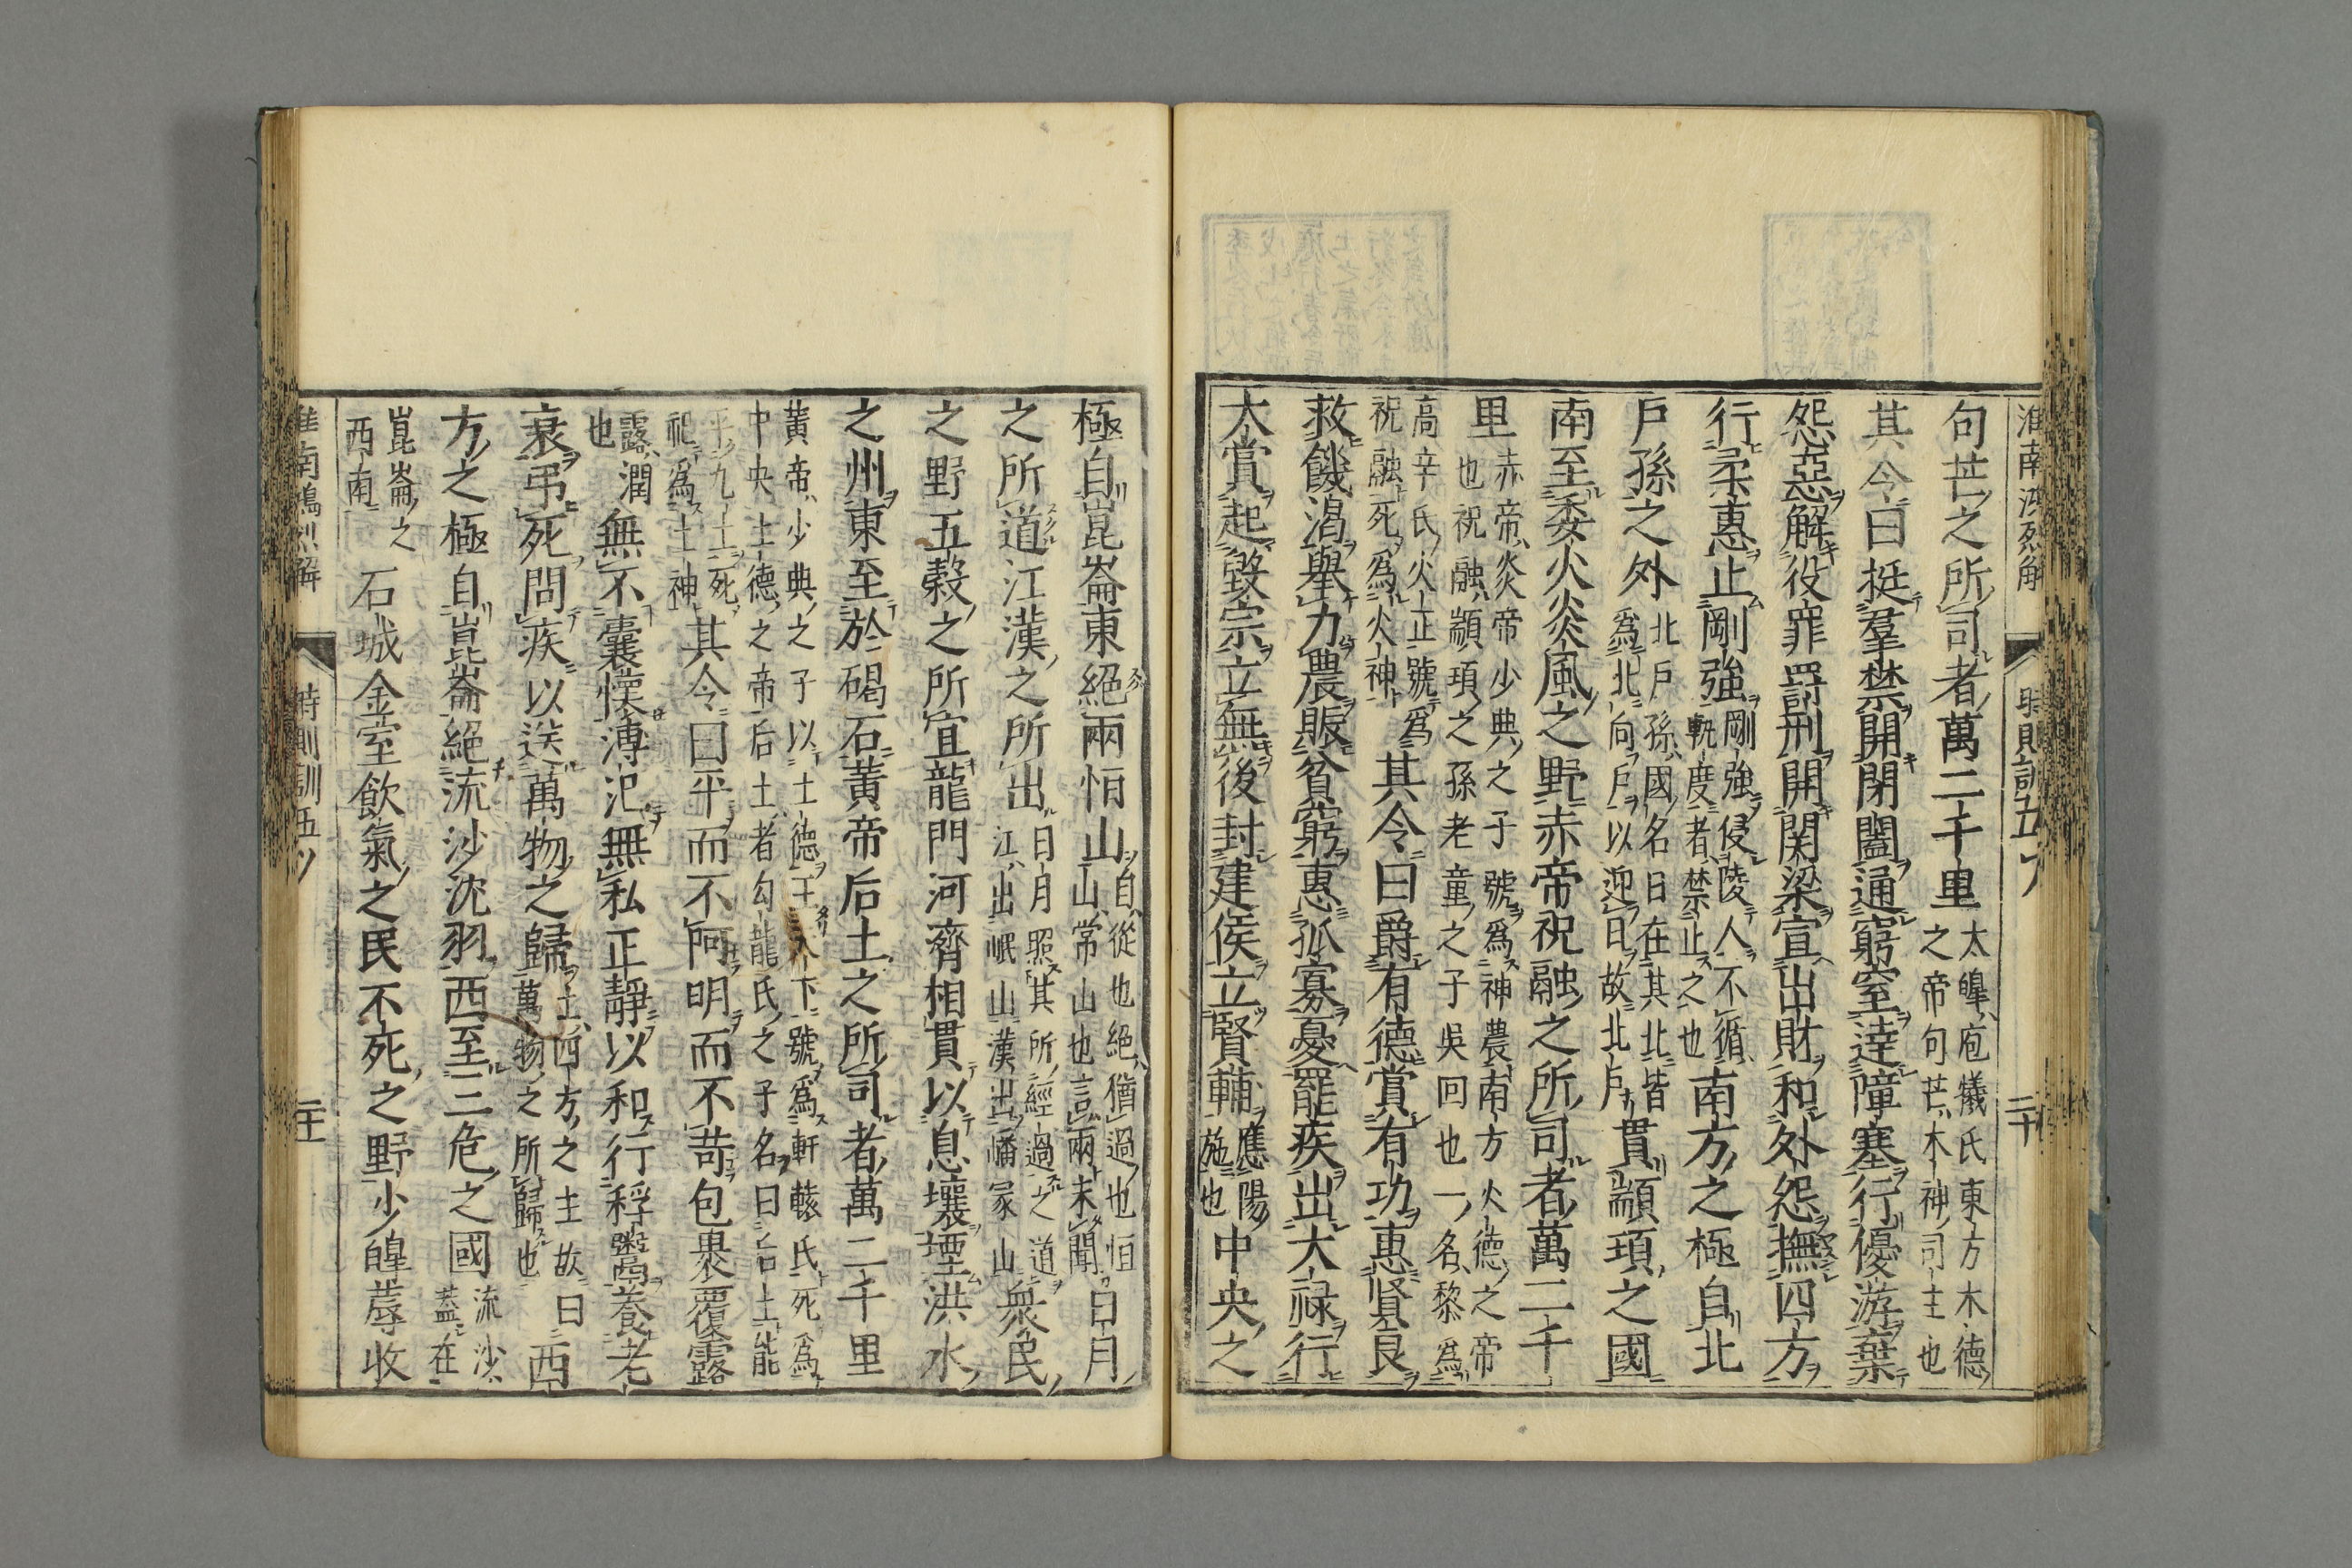 淮南鴻烈解 時則訓五 二十
句芒之所司者萬二千里太皞庖犧氏東方木德之帝句芒木神司主也
其令曰挺羣禁開閉闔通窮窒達障塞行優游棄
怨惡解役罪罰刑開関梁宣出財和外怨撫四方
行柔惠止剛強剛強侵陵人不循軌度者禁止之也南方之極自北
戶孫之外北戶孫國名日在其北皆爲北向戶以迎日故北戶貫顓頊之國
南至委火炎風之野赤帝祝融之所司者萬二千
里赤帝炎帝少典之子號爲神農南方火德之帝也祝融顓頊之孫老童之子吳回也一名黎爲
高辛氏火正號爲祝融死爲火神其令曰爵有德賞有功惠賢良
救饑渴舉力農賑貧窮惠孤寡憂罷疾出大祿行
太賞起毀宗立無後封建侯立賢輔應陽施也中央之
極自崑崙東絕兩恒山自從也絕猶過也恒山常山也言兩未聞日月
之所道江漢之所出日月照其所經過之道江出岷山漢出嶓冢山衆民
之野五穀之所宜龍門河濟相貫以息壤堙洪水
之州東至於碣石黄帝后土之所司者萬二千里
黄帝少典之子以土德王天下號爲軒轅氏死爲中央土德之帝后土者勾龍氏之子名曰后土能
平九土死祀爲土神其令曰平而不阿明而不苛包裹覆露
露潤也無不囊懷溥氾無私正靜以和行稃鬻養老
衰弔死問疾以送萬物之歸土四方之主故曰萬物之所歸也西
方之極自崑崙絕流沙沈羽西至三危之國流沙蓋在
崑崙之西南石城金室飲氣之民不死之野少皞蓐收
淮南鴻烈解 時則訓五 二十一